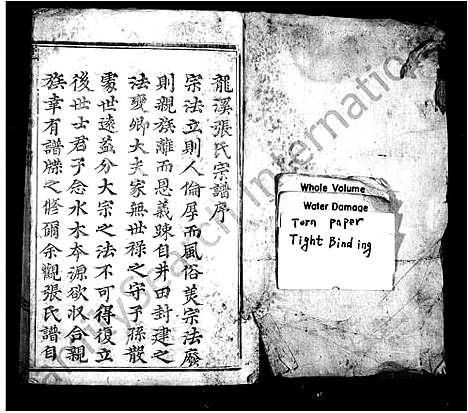 龍溪張氏宗譜序
宗法立則人倫厚而風俗美宗法廢
則親族離而恩義疎自井田封建之
法變卿大夫家無世祿之守子孫散
處世遠益分大宗之法不可得復立
後世士君子念水木本源欲収合親
族幸有譜牒之修爾余觀張氏譜自
Whole Volume
Water Damage
Torn paper
Tight Binding
FamilySearch International